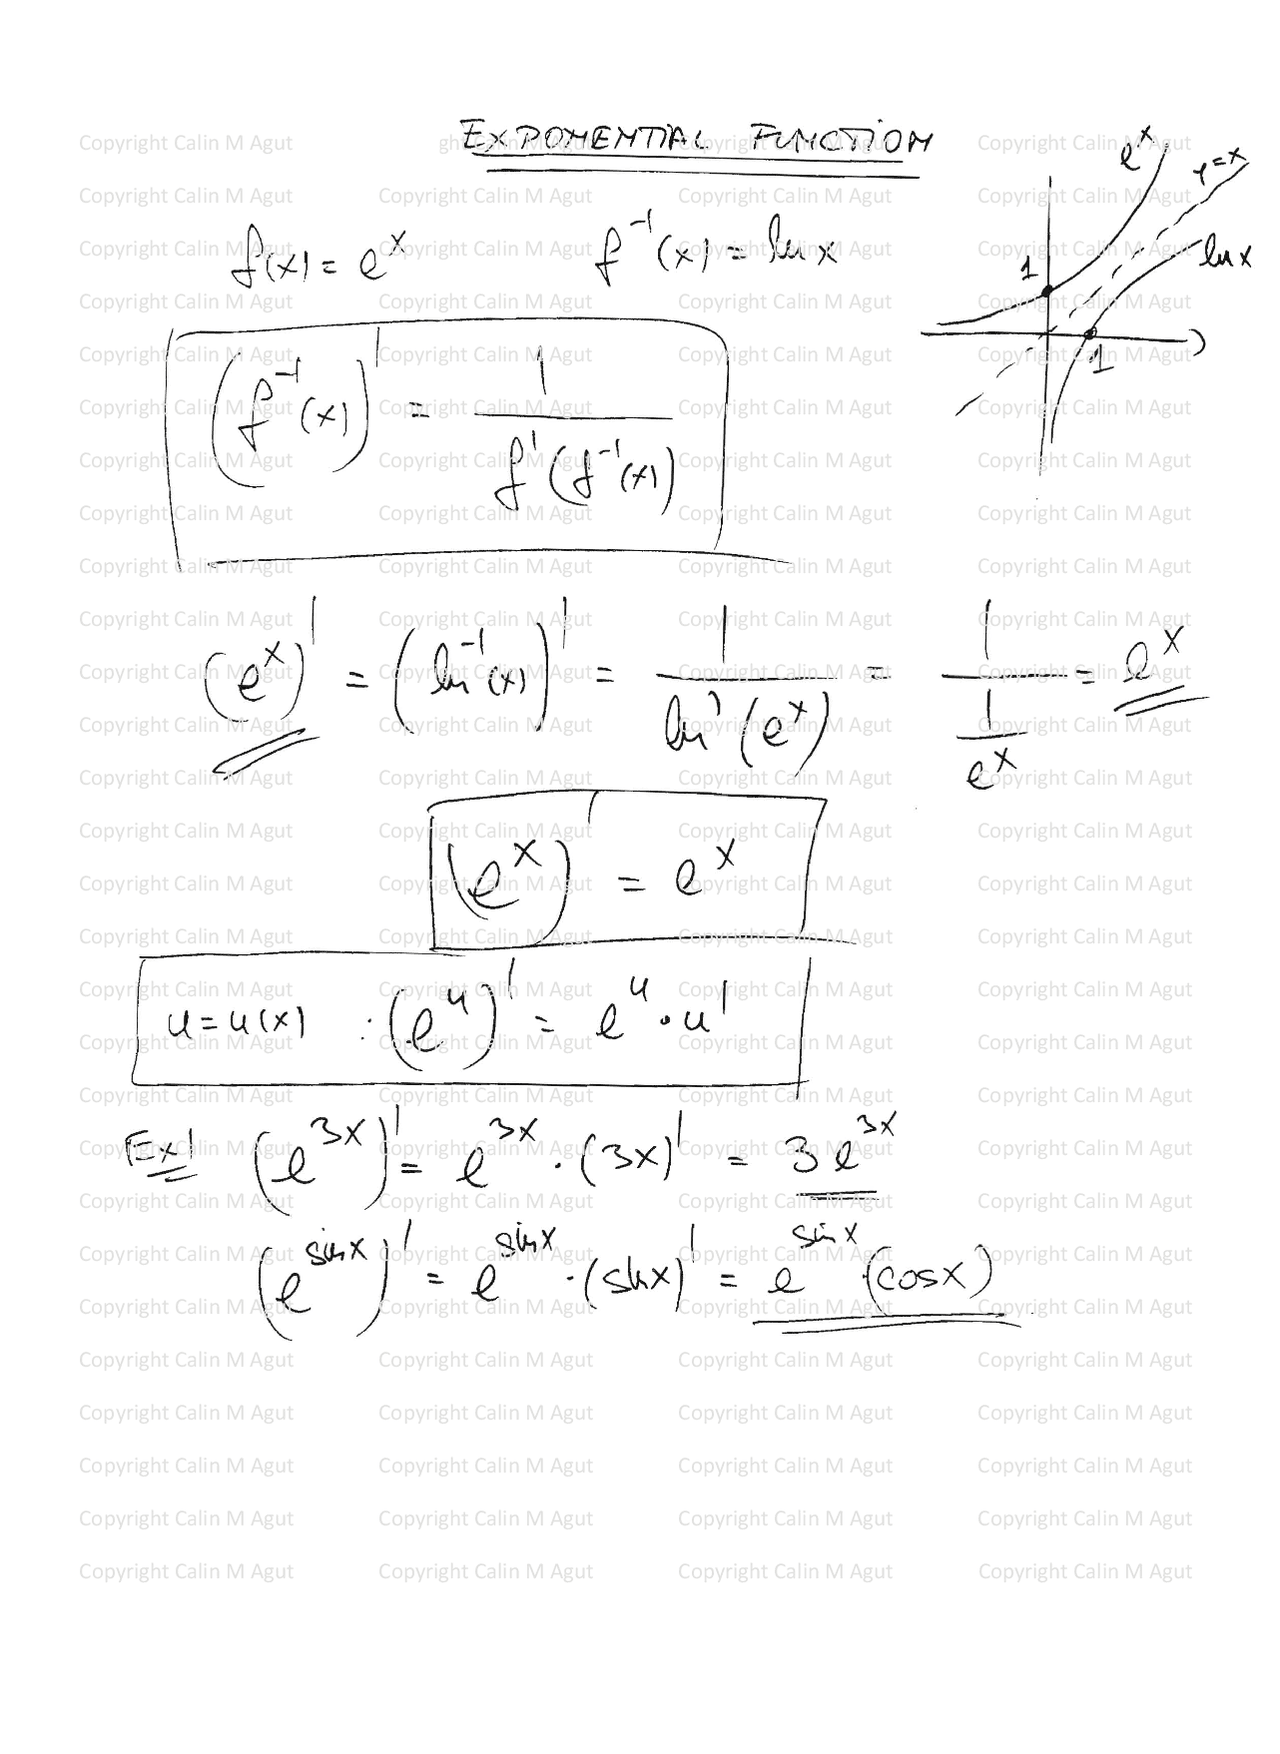 EXPONENTIAL FUNCTION
f(x) = e^x    f^-1(x) = ln x
e^x
y=x
ln x
1
1
(f^-1(x))' = 1 / f'(f^-1(x))
(e^x)' = (ln^-1(x))' = 1 / ln'(e^x) = 1 / (1 / e^x) = e^x
(e^x)' = e^x
u = u(x) : (e^u)' = e^u · u'
Ex! (e^3x)' = e^3x · (3x)' = 3e^3x
(e^sinx)' = e^sinx · (sinx)' = e^sinx (cosx)
Copyright Calin M Agut